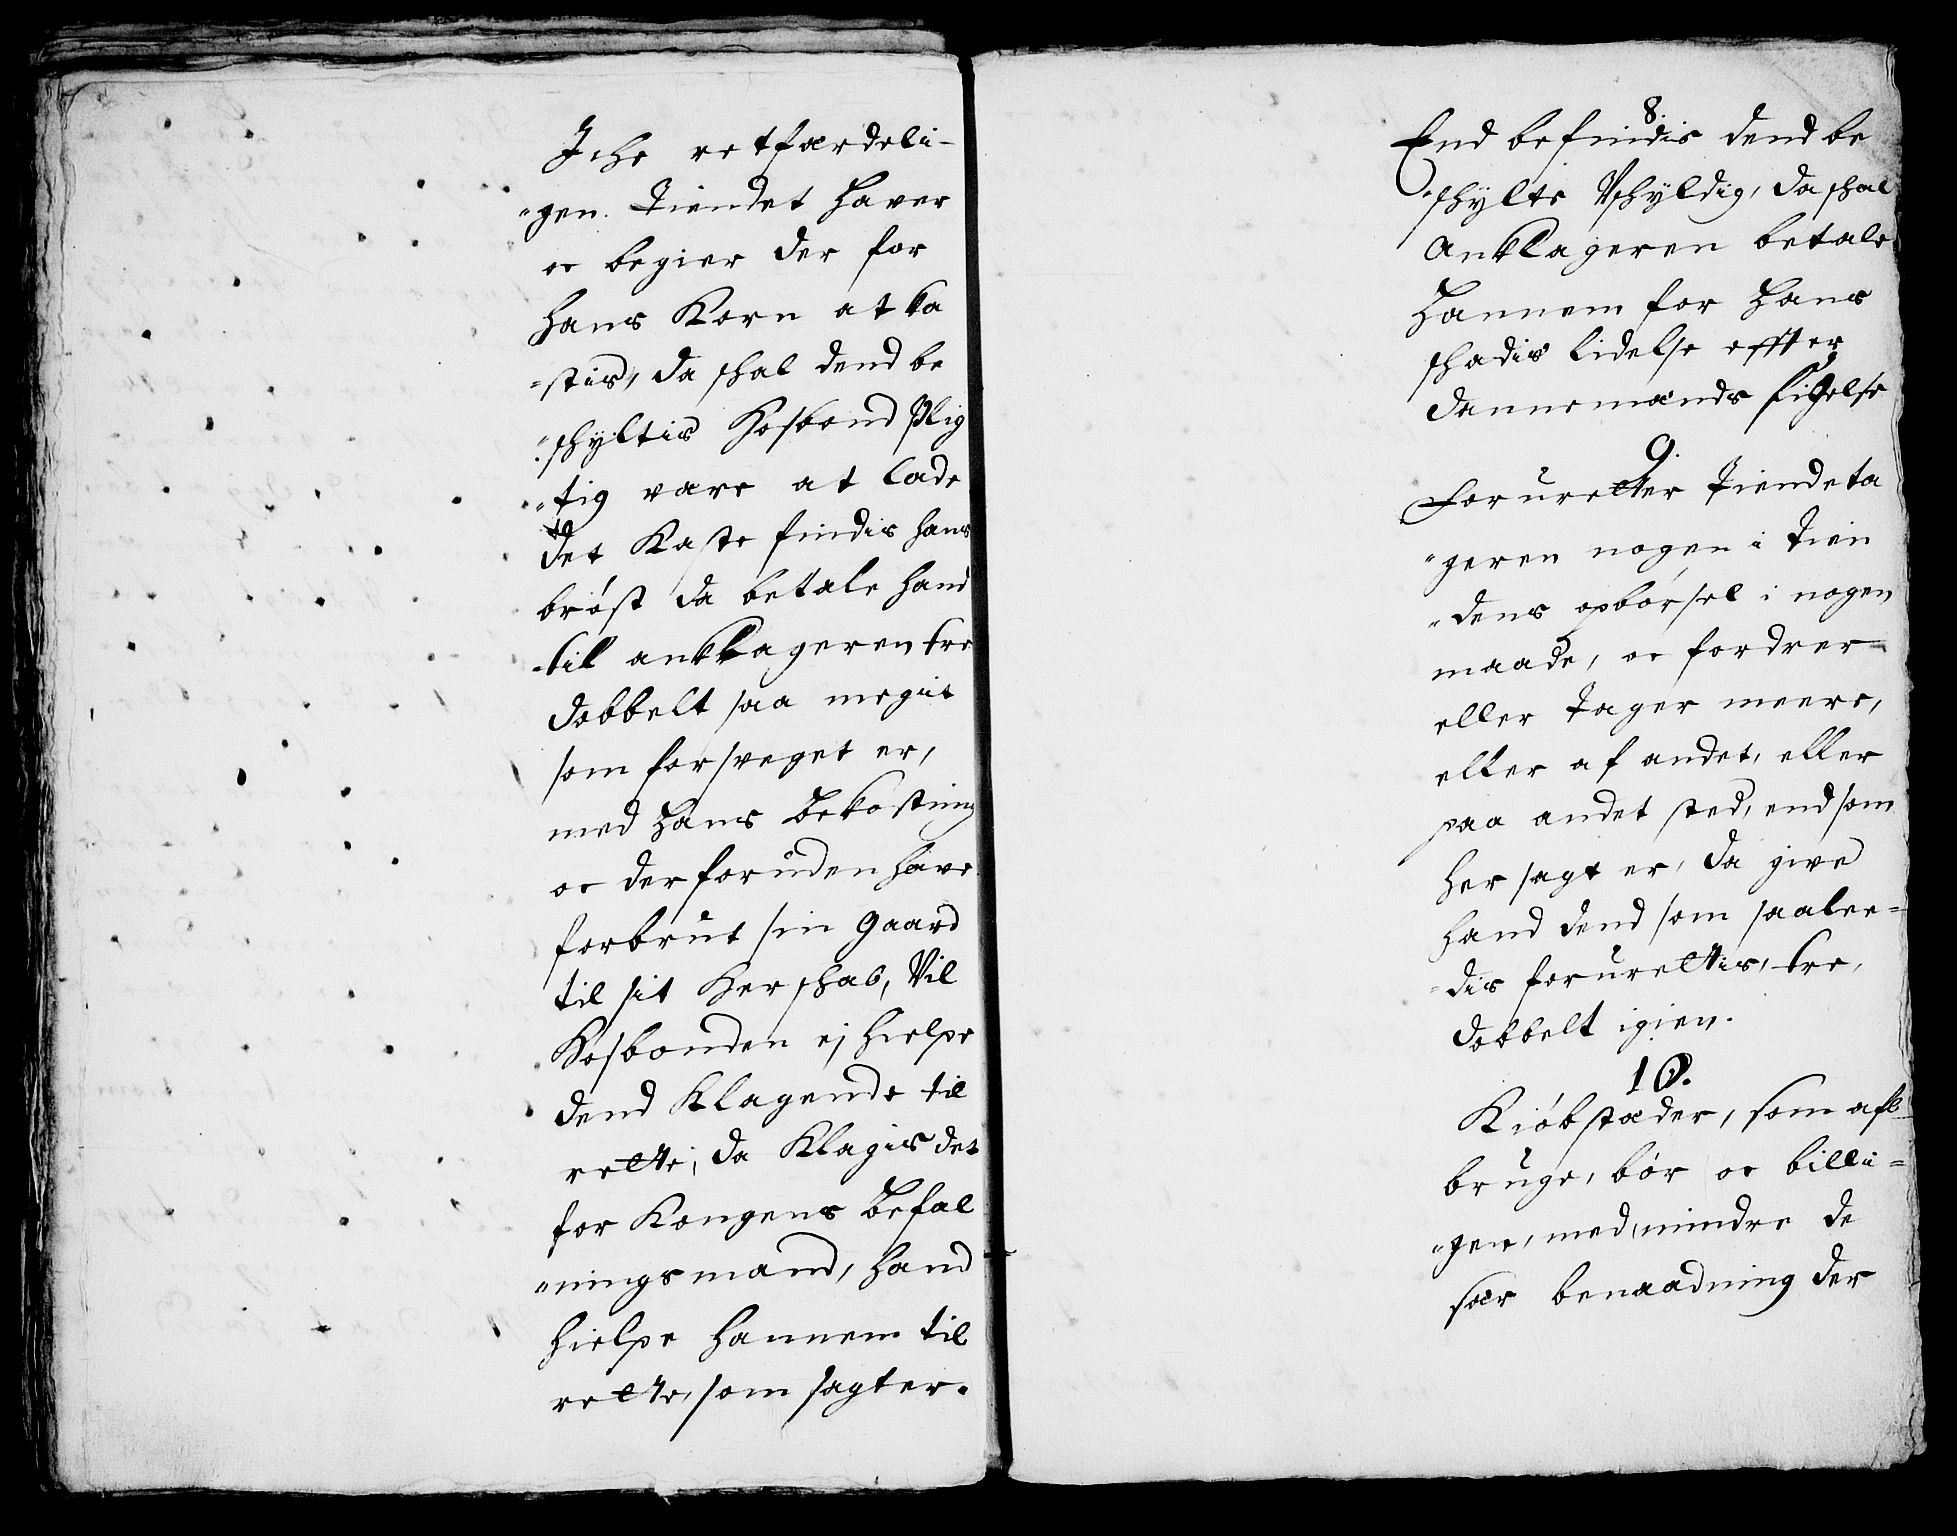 Iche retfærdeli-
"gen. Tiendet haver
oc begier der for
hans Korn at ka
"stis, da shal dend be
"shyltis Hosbond Plig
"tig være at lade
det Kaste findis hans
brøst da betale hand
til anklageren tre
dobbelt saa megit
som forsveget er,
med hans bekostning
oc der foruden have
forbrut sin gaard
til sit Hershab, Vil
Hosbonden ej hielpe
dend Klagende til
rette, da Klagis det
for Kongens befal
"ningsmand, hand
hielpe hannem til
rette, som sagt er.
8.
End befindis dend be
"shylte Vshyldig, da shal
Anklageren betale
hannem for hans
shadis lidelse effter
dannemænds sigelse
9.
Foruretter Tiendeta
"geren nogen i Tien
"dens opbørsel i nogen
maade, oc fordrer
eller tager meere,
eller af andet, eller
paa andet sted, end som
her sagt er, da give
hand dend som saalee=
dis forurettis, tre,
dobbelt igien.
10.
Kiøbstæder, som afl
bruge, bør oc billi=
"gen, med mindre de
sær benaadning der